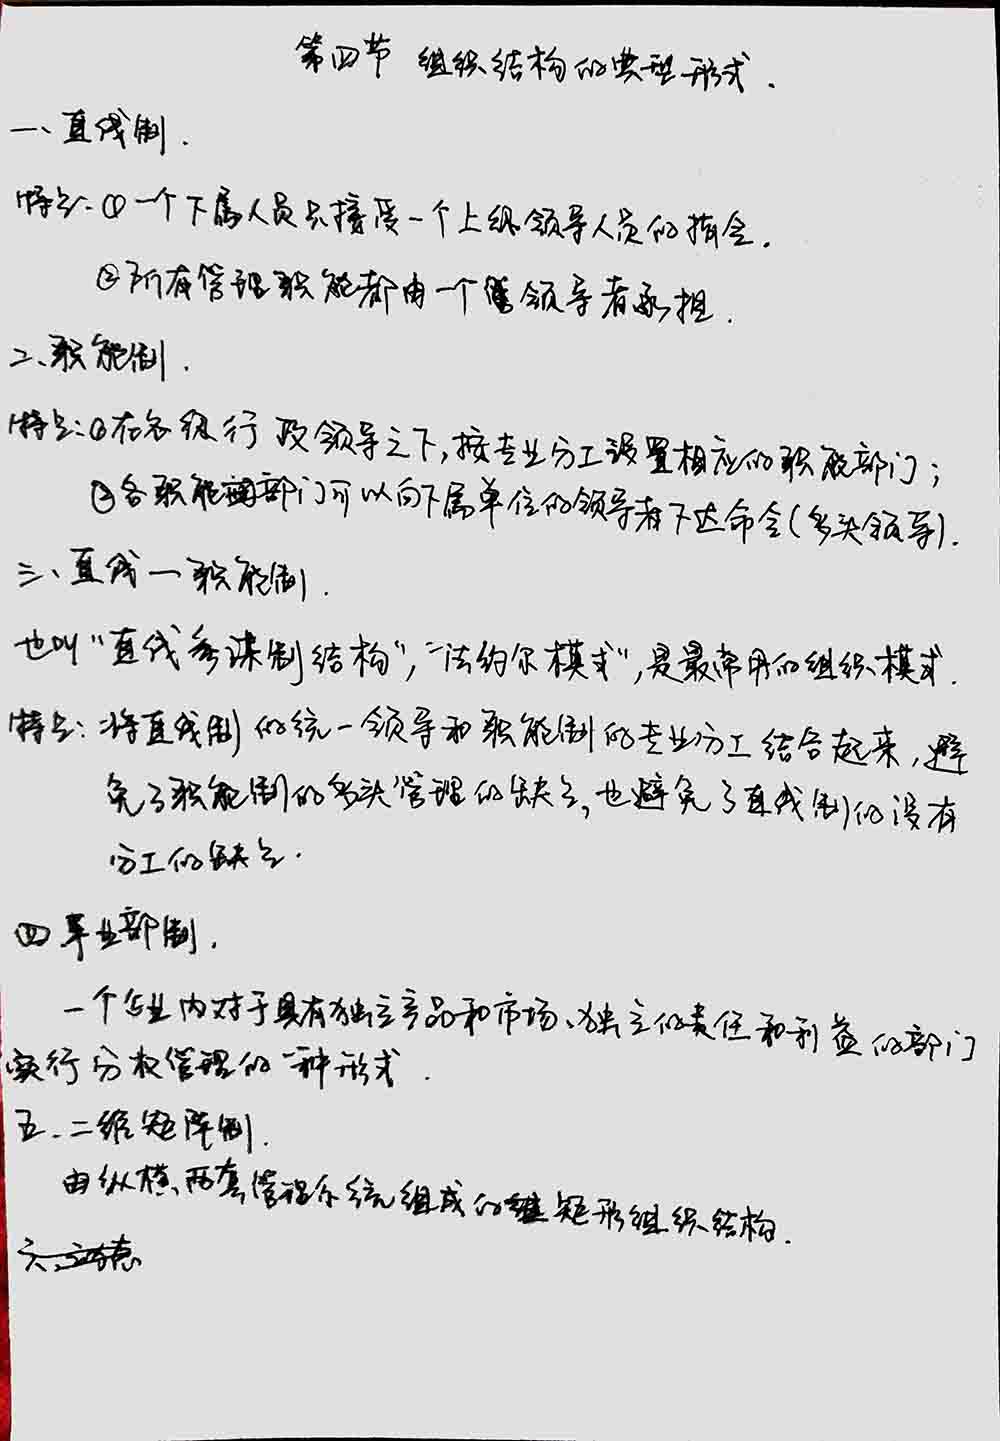 第四节 组织结构的典型形式.
一、直线制.
特点:①一个下属人员只接受一个上级领导人员的指令.
②所有管理职能都由一个领导者承担.
二、职能制.
特点:①在各级行政领导之下,按专业分工设置相应的职能部门;
②各职能部门可以向下属单位的领导者下达命令(多头领导).
三、直线一职能制.
也叫“直线参谋制结构”,“法约尔模式”,是最常用的组织模式.
特点:将直线制的统一领导和职能制的专业分工结合起来,避
免了职能制的多头管理的缺点,也避免了直线制的没有
分工的缺点.
四 事业部制.
一个企业内对于具有独立产品和市场、独立的责任和利益的部门
实行分权管理的一种形式.
五、二维矩阵制.
由纵横两套管理系统组成的矩形组织结构.
六、